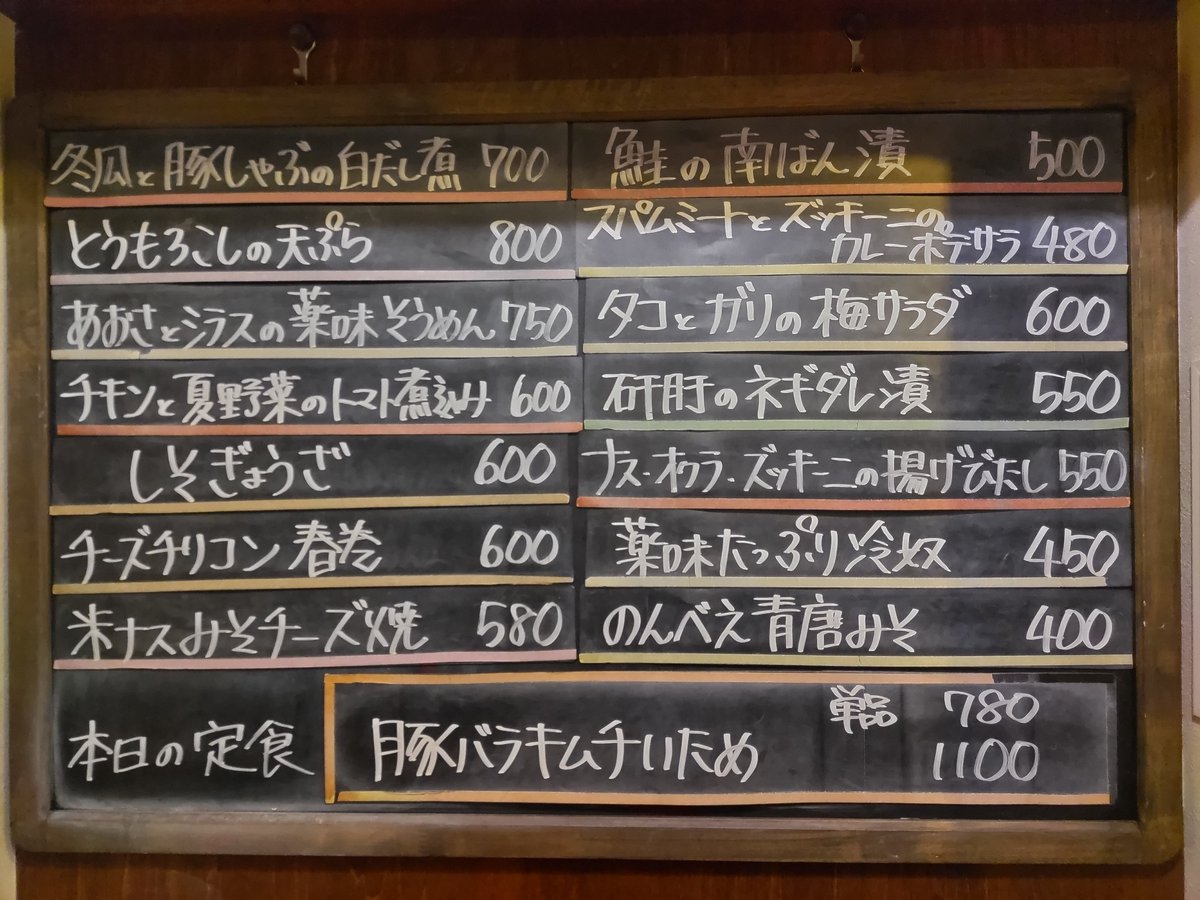 冬瓜と豚しゃぶの白だし煮 700
とうもろこしの天ぷら 800
あおさとシラスの薬味そうめん 750
チキンと夏野菜のトマト煮込み 600
しそぎょうざ 600
チーズチリコン春巻 600
米ナスみそチーズ焼 580
鮭の南ばん漬 500
スパムミートとズッキーニの
カレーポテサラ 480
タコとガリの梅サラダ 600
砂肝のネギダレ漬 550
ナス・オクラ・ズッキーニの揚げびたし 550
薬味たっぷり冷奴 450
のんべえ青唐みそ 400
本日の定食
豚バラキムチいため
単品 780
1100